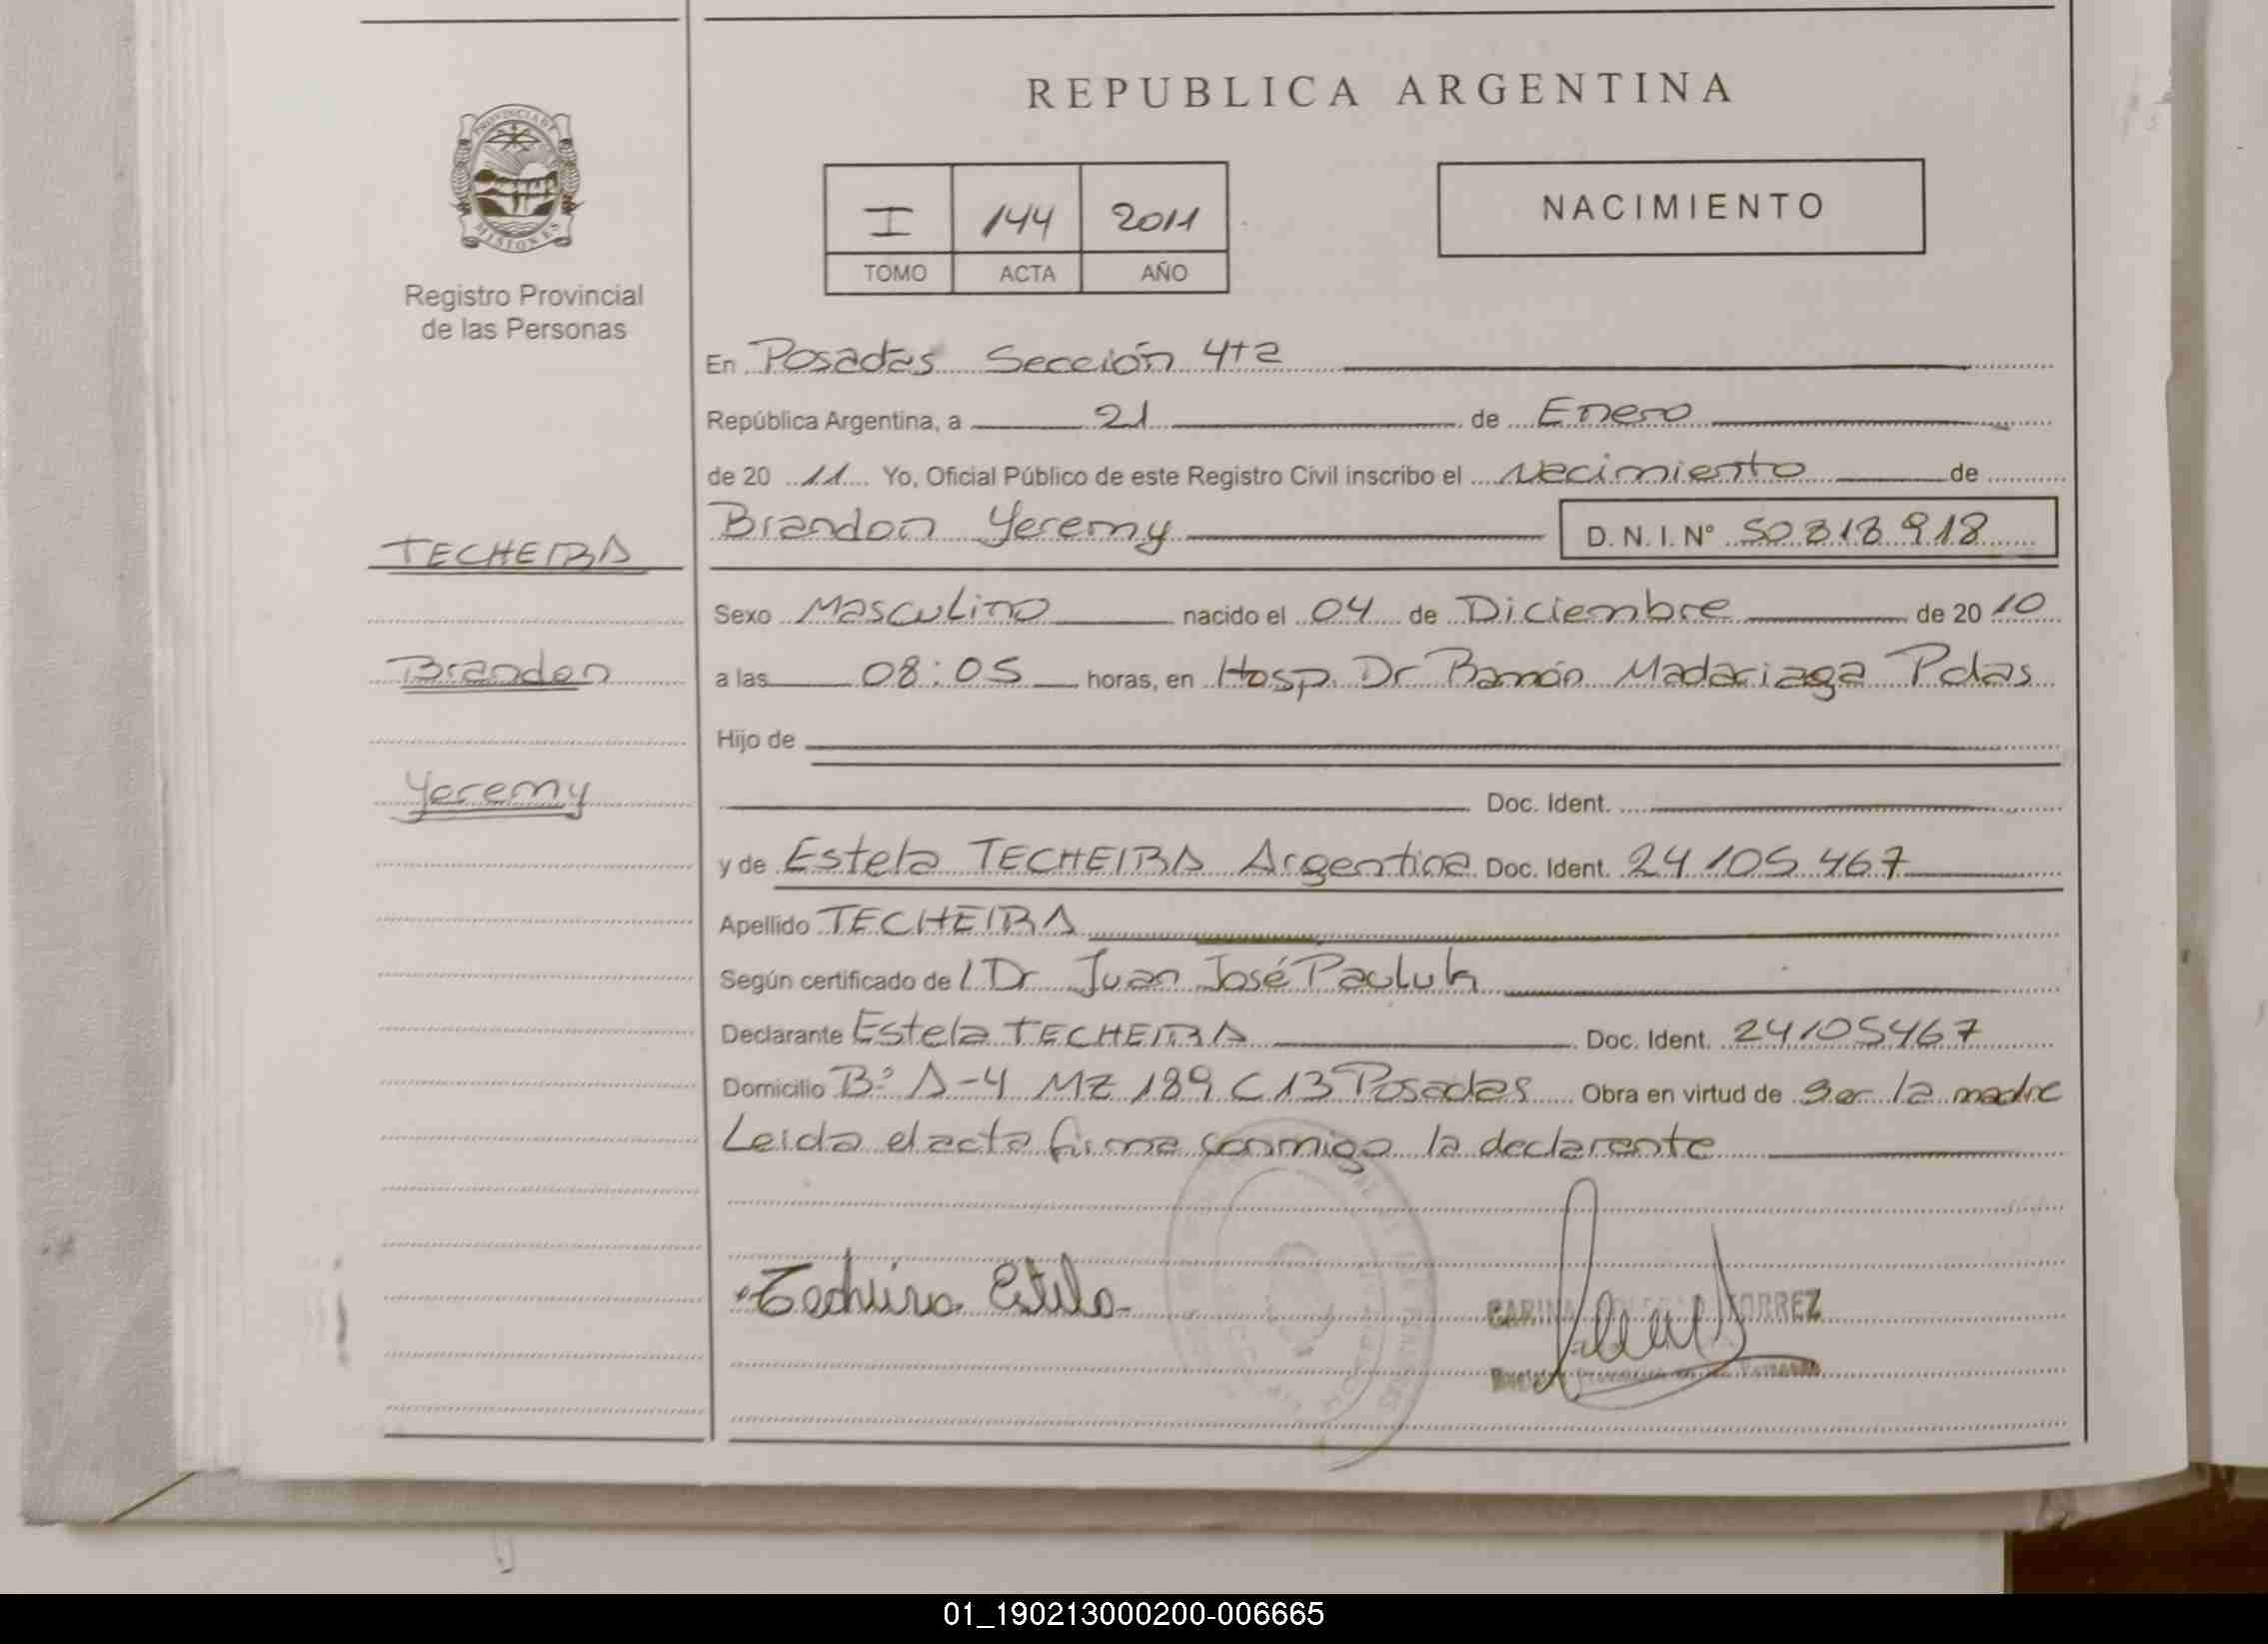 REPUBLICA ARGENTINA
PROVINCIA DE
MISIONES
Registro Provincial
de las Personas
I 144 2011
TOMO ACTA AÑO
NACIMIENTO
En Posadas Sección 4ta
República Argentina, a 21 de Enero
de 20 11 Yo, Oficial Público de este Registro Civil inscribo el Nacimiento de
Brandon Yeremy D. N. I. Nº 50 313 918
TECHEIRA
Sexo Masculino nacido el 04 de Diciembre de 20 10
Brandon
a las 08:05 horas, en Hosp. Dr Ramón Madariaga Pdas
Hijo de
Yeremy
Doc. Ident.
y de Estela TECHEIRA Argentina Doc. Ident. 24 105 467
Apellido TECHEIRA
Según certificado de / Dr Juan José Pauluk
Declarante Estela TECHEIRA Doc. Ident. 24105467
Domicilio Bº A-4 MZ 189 C 13 Posadas Obra en virtud de ser la madre
Leida el acta firma conmigo la declarante
Techeira Estela
01_190213000200-006665